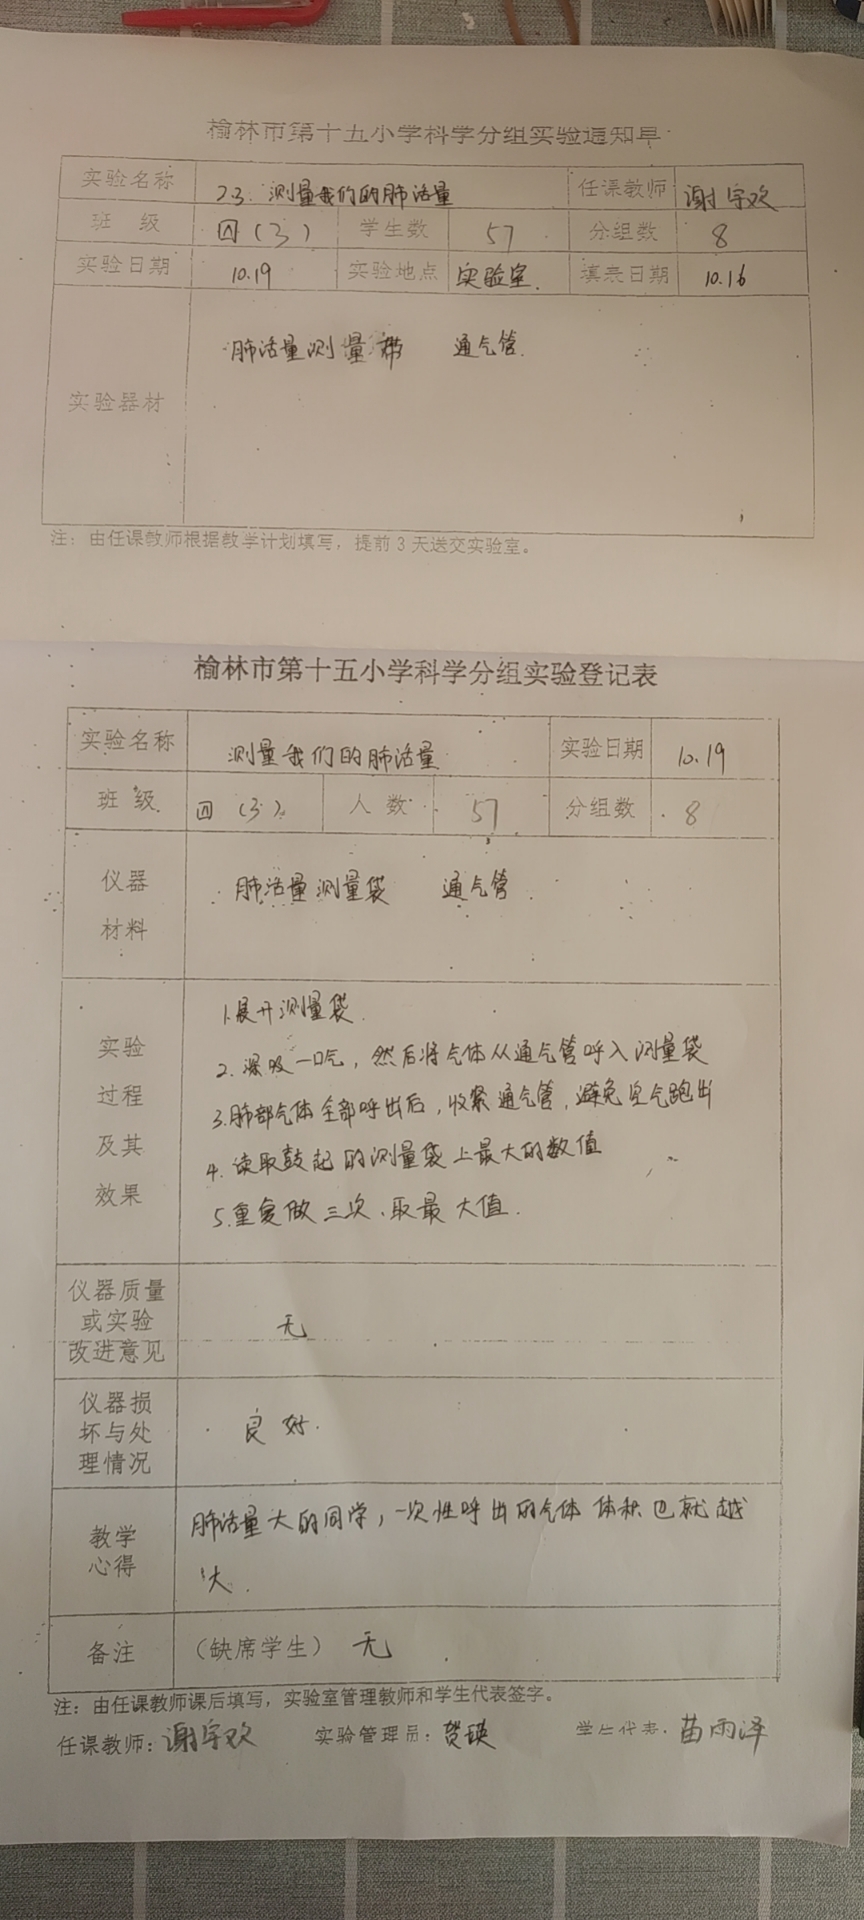 榆林市第十五小学科学分组实验通知单
实验名称 2.3. 测量我们的肺活量 任课教师 谢宇欢
班 级 四(3) 学生数 57 分组数 8
实验日期 10.19 实验地点 实验室. 填表日期 10.16
实验器材 肺活量测量带 通气管.
注：由任课教师根据教学计划填写，提前3天送交实验室。
榆林市第十五小学科学分组实验登记表
实验名称 测量我们的肺活量 实验日期 10.19
班 级 四(3) 人 数 57 分组数 8
仪器
材料
肺活量测量袋 通气管
实验
过程
及其
效果
1.展开测量袋.
2.深吸一口气，然后将气体从通气管呼入测量袋
3.肺部气体全部呼出后，收紧通气管，避免空气跑出
4.读取鼓起的测量袋上最大的数值
5.重复做三次、取最大值.
仪器质量
或实验
改进意见
无
仪器损
坏与处
理情况
良好.
教学
心得
肺活量大的同学，一次性呼出的气体体积也就越
大.
备注 （缺席学生） 无
注：由任课教师课后填写，实验室管理教师和学生代表签字。
任课教师：谢宇欢 实验管理员：贺瑛 学生代表：苗雨泽